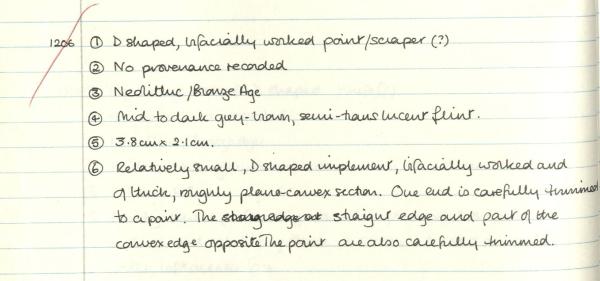 1206 ① D shaped, bifacially worked point/scraper (?)
② No provenance recorded
③ Neolithic/Bronze Age
④ Mid to dark grey-brown, semi-translucent flint.
⑤ 3.8cm x 2.1cm.
⑥ Relatively small, D shaped implement, bifacially worked and
of thick, roughly plano-convex section. One end is carefully trimmed
to a point. The straight edge and part of the
convex edge opposite The point are also carefully trimmed.